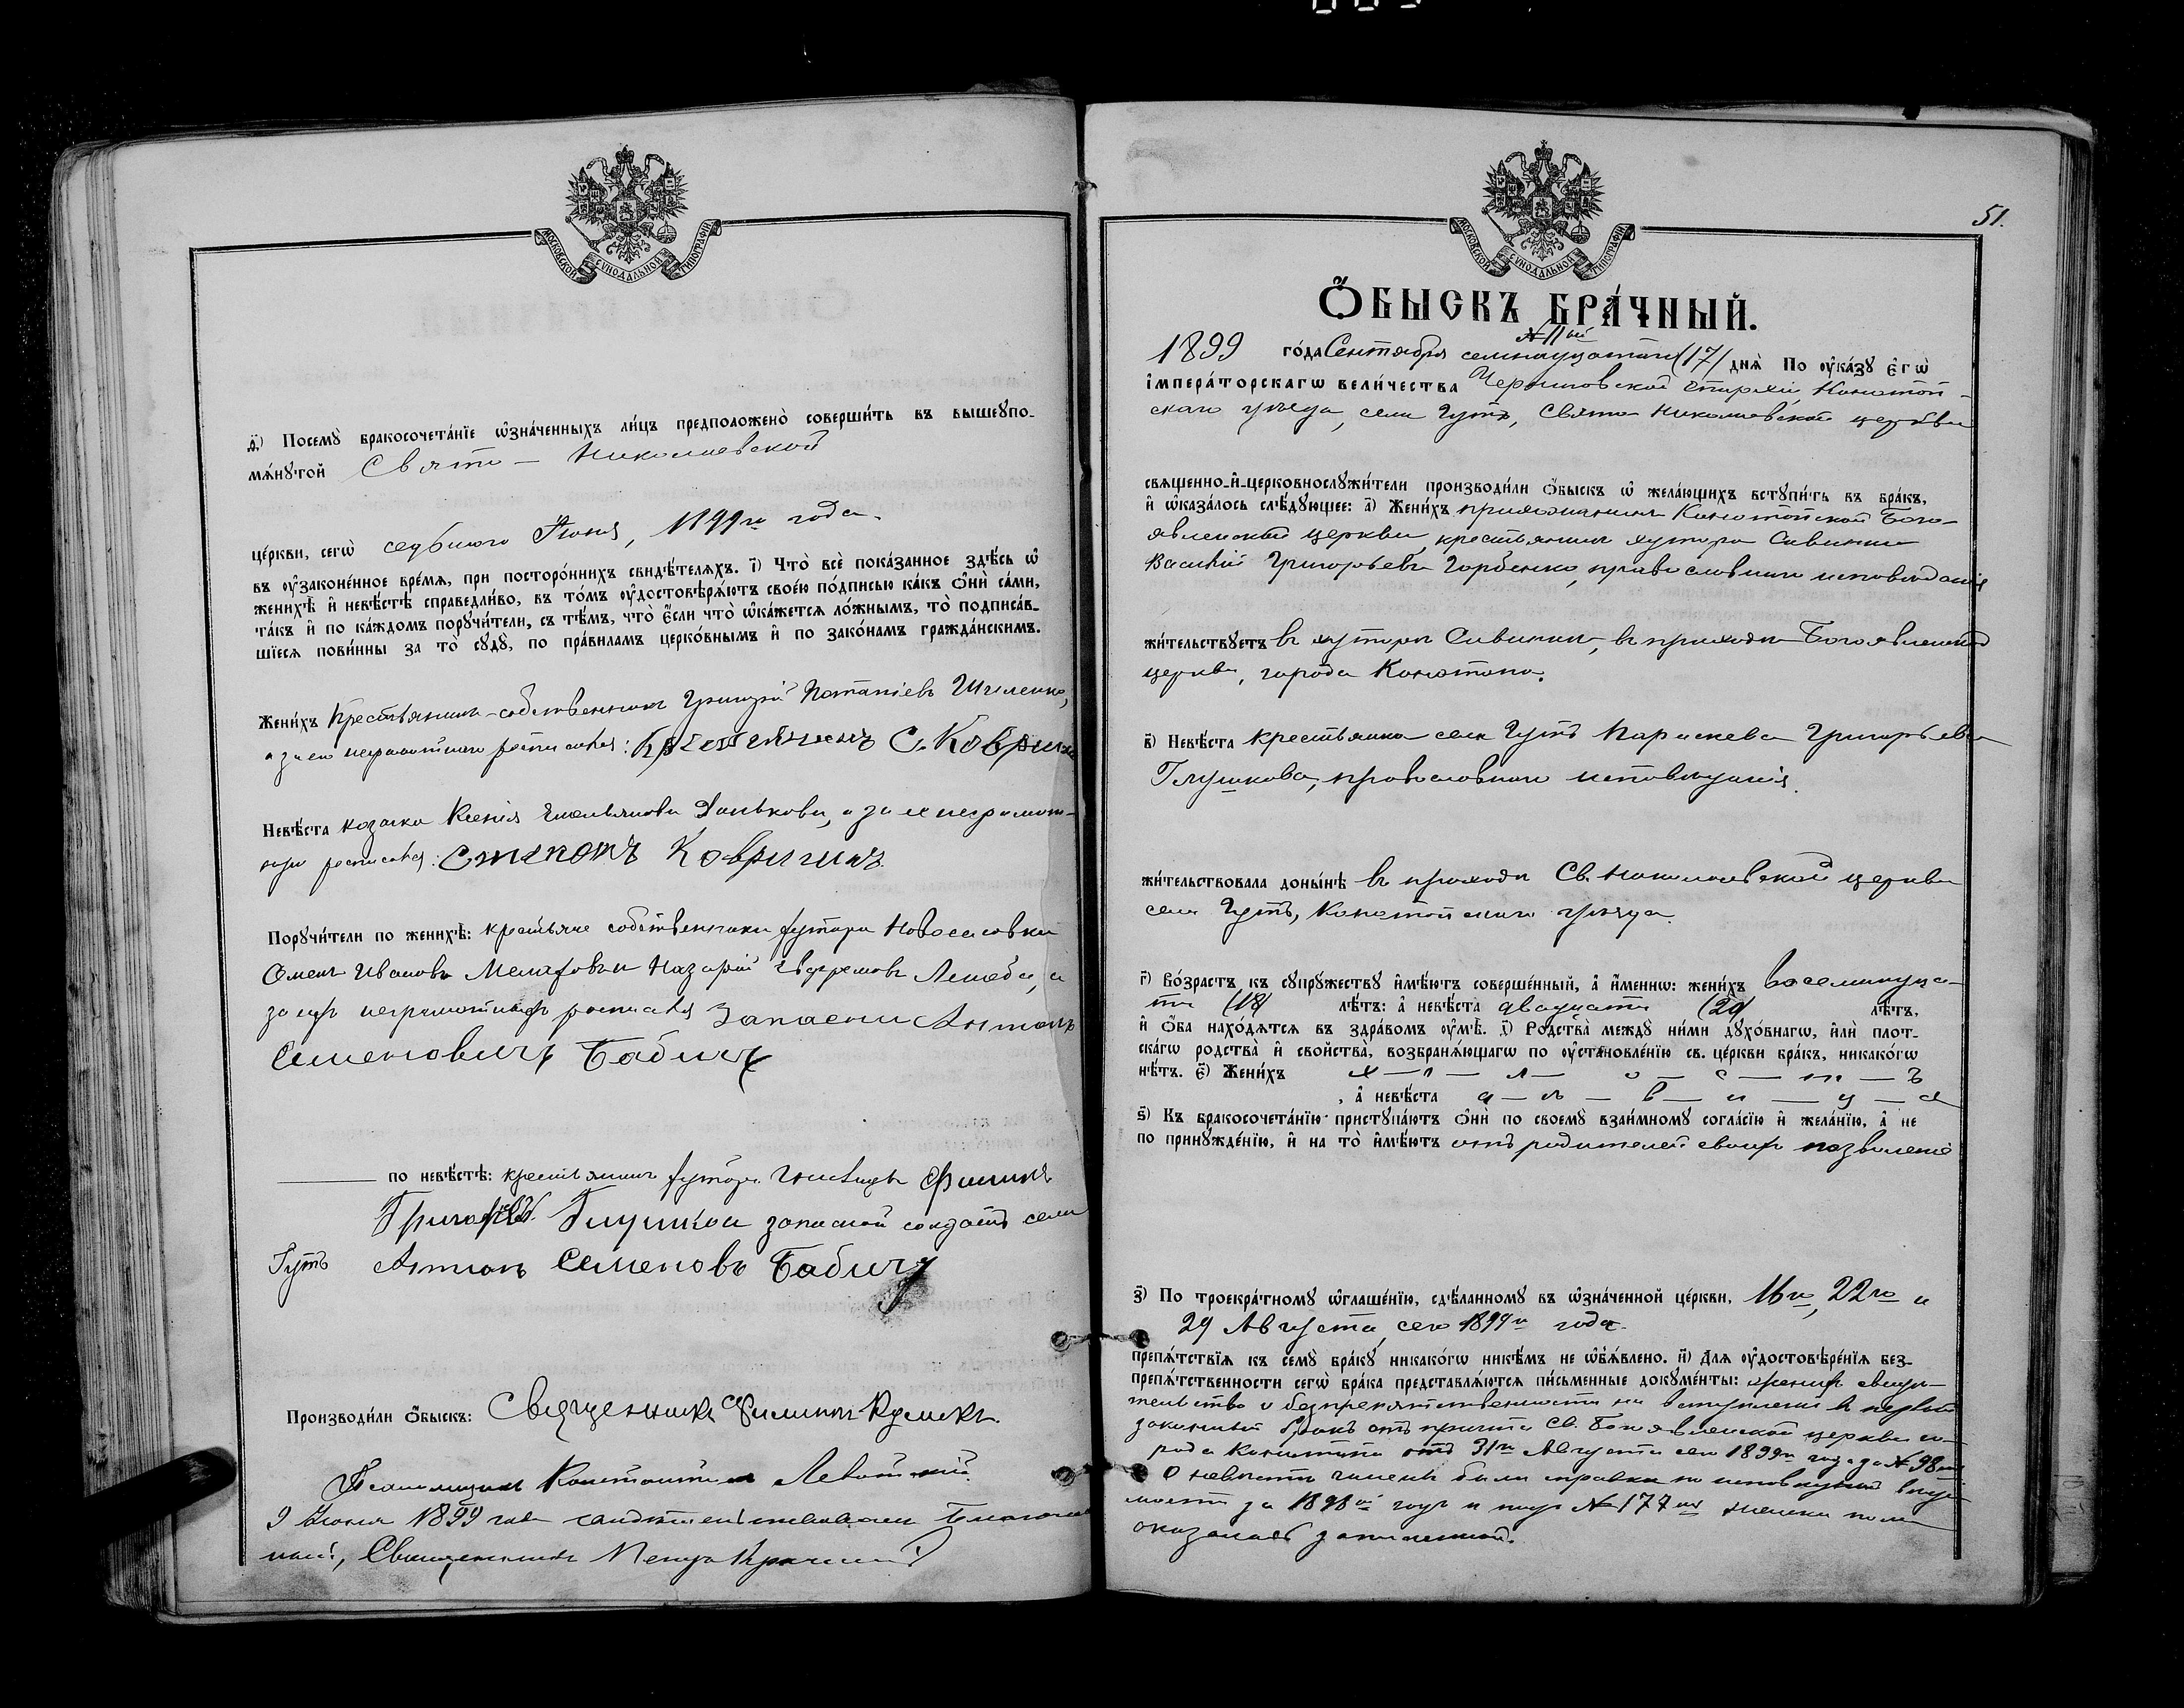 МОСКОВСКОЙ СѴНОДАЛЬНОЙ ТИПОГРАФІИ
ѳ҃) Посемꙋ̀ бракосочета́нїе ѡ҆зна́ченныхъ ли́цъ предположено̀ соверши́ть въ вышеꙋпо-
мѧ́нꙋтой Свято - Николаевской
це́ркви, сегѡ̀ седьмого Іюня, 1899го года.
въ ᲂу҆законе́нное вре́мѧ, при посторо́ннихъ свидѣ́телѧхъ. і҃) Что̀ всѐ пока́занное здѣ́сь ѡ҆
женихѣ̀ и҆ невѣ́стѣ справедли́во, въ то́мъ ᲂу҆достовѣрѧ́ютъ свое́ю по́дписью ка́къ ѻ҆нѝ са́ми,
та́къ и҆ по ка́ждомъ порꙋчи́тели, съ тѣ́мъ, что̀ є҆́сли что̀ ѡ҆ка́жетсѧ ло́жнымъ, то̀ подписа́в-
шїесѧ пови́нны за то̀ сꙋдꙋ̀, по пра́виламъ церко́внымъ и҆ по зако́намъ гражда́нскимъ.
Жени́хъ крестьянинъ-собственникъ Григорій Потапіевъ
а за его неграмотного росписался: С. Ковригинъ
Невѣ́ста козачка Ксенія Емельянова Данькова, а за ее неграмот-
ную росписался: Степанъ Ковригинъ
Порꙋчи́тели по женихѣ̀: крестьяне собственники хутора Новоселовки
Семенъ Ивановъ и Назарій Евфремовъ а
за ихъ неграмотныхъ росписался Запасный Антонъ
Семеновичъ Бабичъ
по невѣ́стѣ: крестьянинъ хутора Филипъ
Григорьевъ Глушков запасной солдатъ села
Гутъ Антонъ Семеновъ Бабичъ
Производи́ли ѻ҆́быскъ: Священникъ Филиппъ
Псаломщикъ Константинъ Левитскій
9 Іюня 1899 года свидѣтельствовалъ Благочин
ный, Священникъ Петръ
51.
МОСКОВСКОЙ СѴНОДАЛЬНОЙ ТИПОГРАФІИ
Ѻ҆́БЫСКЪ БРА́ЧНЫЙ.
№ 11ый
1899 го́да Сентября семнадцатаго (17) днѧ̀ По ᲂу҆ка́зꙋ є҆гѡ̀
і҆мпера́торскагѡ вели́чества Черниговской Епархіи, Конотоп-
скаго уѣзда, села Гутъ, Свято Николаевской церкви
свѧщенно-и҆-церковнослꙋжи́тели производи́ли ѻ҆́быскъ ѡ҆ жела́ющихъ встꙋпи́ть въ бра́къ,
и҆ ѡ҆каза́лось слѣ́дꙋющее: а҃) Жени́хъ прихожанинъ Конотопской Бого-
явленской церкви, крестьянинъ хутора Савинки
Василій Григорьевъ Горбенко, православнаго исповѣданія
жи́тельствꙋетъ въ хуторѣ Савинки, въ приходѣ Богоявленской
церкви, города Конотопа.
в҃) Невѣ́ста крестьянка села Гутъ Параскева Григорьева
Глушкова, православнаго исповѣданія.
жи́тельствовала доны́нѣ въ приходѣ Св. Николаевской церкви
села Гутъ, Конотопскаго уѣзда.
г҃) Во́зрастъ къ сꙋпрꙋ́жествꙋ и҆мѣ́ютъ соверше́нный, а҆ и҆́меннѡ: жени́хъ восемнадца-
ти (18) лѣ́тъ: а҆ невѣ́ста двадцати (20) лѣ́тъ,
и҆ ѻ҆́ба нахо́дѧтсѧ въ здра́вомъ ᲂу҆мѣ̀. д҃) Родства̀ междꙋ ни́ми дꙋхо́внагѡ, и҆лѝ плот-
ска́гѡ родства̀ и҆ свойства̀, возбранѧ́ющагѡ по ᲂу҆становле́нїю св. це́ркви бра́къ, никако́гѡ
нѣ́тъ. є҃) Жени́хъ х — о — л — о — с — т — ъ
, а҆ невѣ́ста д — ѣ — в — и — ц — а
ѕ҃) Къ бракосочета́нїю пристꙋпа́ютъ ѻ҆нѝ по своемꙋ̀ взаи́мномꙋ согла́сїю и҆ жела́нїю, а҆ не
по принꙋжде́нїю, и҆ на то̀ и҆мѣ́ютъ отъ родителей своихъ позволеніе
з҃) По троекра́тномꙋ ѡ҆глаше́нїю, сдѣ́ланномꙋ въ ѡ҆зна́ченной це́ркви, 16го, 22го и
29 Августа, сего 1899го года.
препѧ́тствїѧ къ семꙋ̀ бра́кꙋ никако́гѡ никѣ́мъ не ѡ҆б̾ѧ́влено. и҃) Длѧ ᲂу҆достовѣре́нїѧ без-
препѧ́тственности сегѡ̀ бра́ка представлѧ́ютсѧ пи́сьменные докꙋме́нты: женихъ свидѣ-
тельство о безпрепятственности на вступленіе въ первый
законный бракъ отъ причта Св. Богоявленской церкви го-
рода Конотопа отъ 31го Августа сего 1899го года за № 98мъ
О невѣстѣ была справка по исповѣдной вѣдо-
мости за 1898ой годъ и подъ № 177
оказалась записанной.